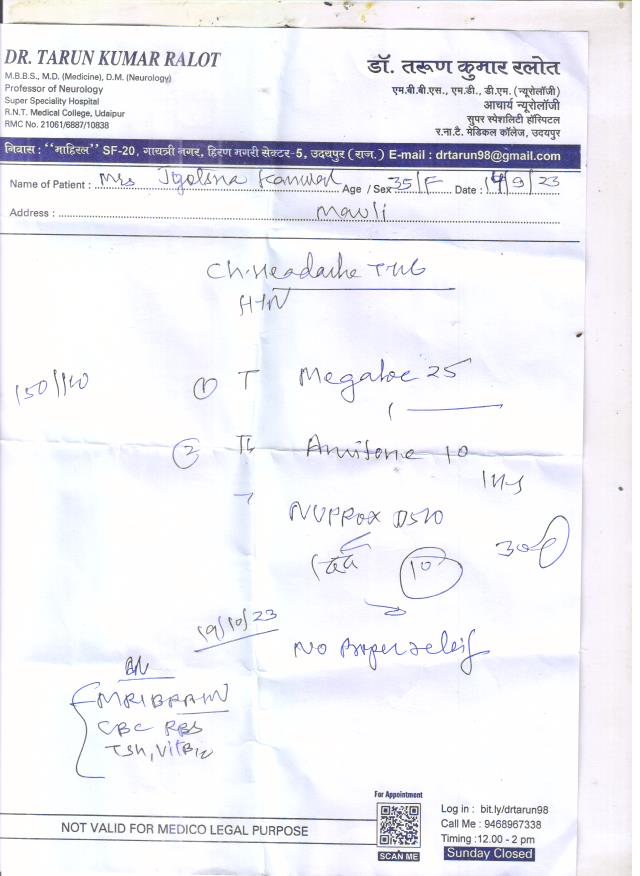 DR. TARUN KUMAR RALOT
M.B.B.S., M.D. (Medicine), D.M. (Neurology)
Professor of Neurology
Super Speciality Hospital
R.N.T. Medical College, Udaipur
RMC No. 21061/6887/10838
डॉ. तरूण कुमार रलोत
एम.बी.बी.एस., एम.डी., डी.एम. (न्यूरोलॉजी)
आचार्य न्यूरोलॉजी
सुपर स्पेशलिटी हॉस्पिटल
र.ना.टै. मेडिकल कॉलेज, उदयपुर
निवास : "माहिरल" SF-20, गायत्री नगर, हिरण मगरी सेक्टर-5, उदयपुर (राज.) E-mail : drtarun98@gmail.com
Name of Patient : Mrs Age / Sex 35/F Date : 14/9/23
Address : Mavli
Ch. Headache
HTN
① T Megaloc 25
②
10
NUPROX
10
19/10/23
No proper releif
MRI BRAIN
CBC RBS
TSH, Vit B12
For Appointment
SCAN ME
Log in : bit.ly/drtarun98
Call Me : 9468967338
Timing : 12.00 - 2 pm
Sunday Closed
NOT VALID FOR MEDICO LEGAL PURPOSE